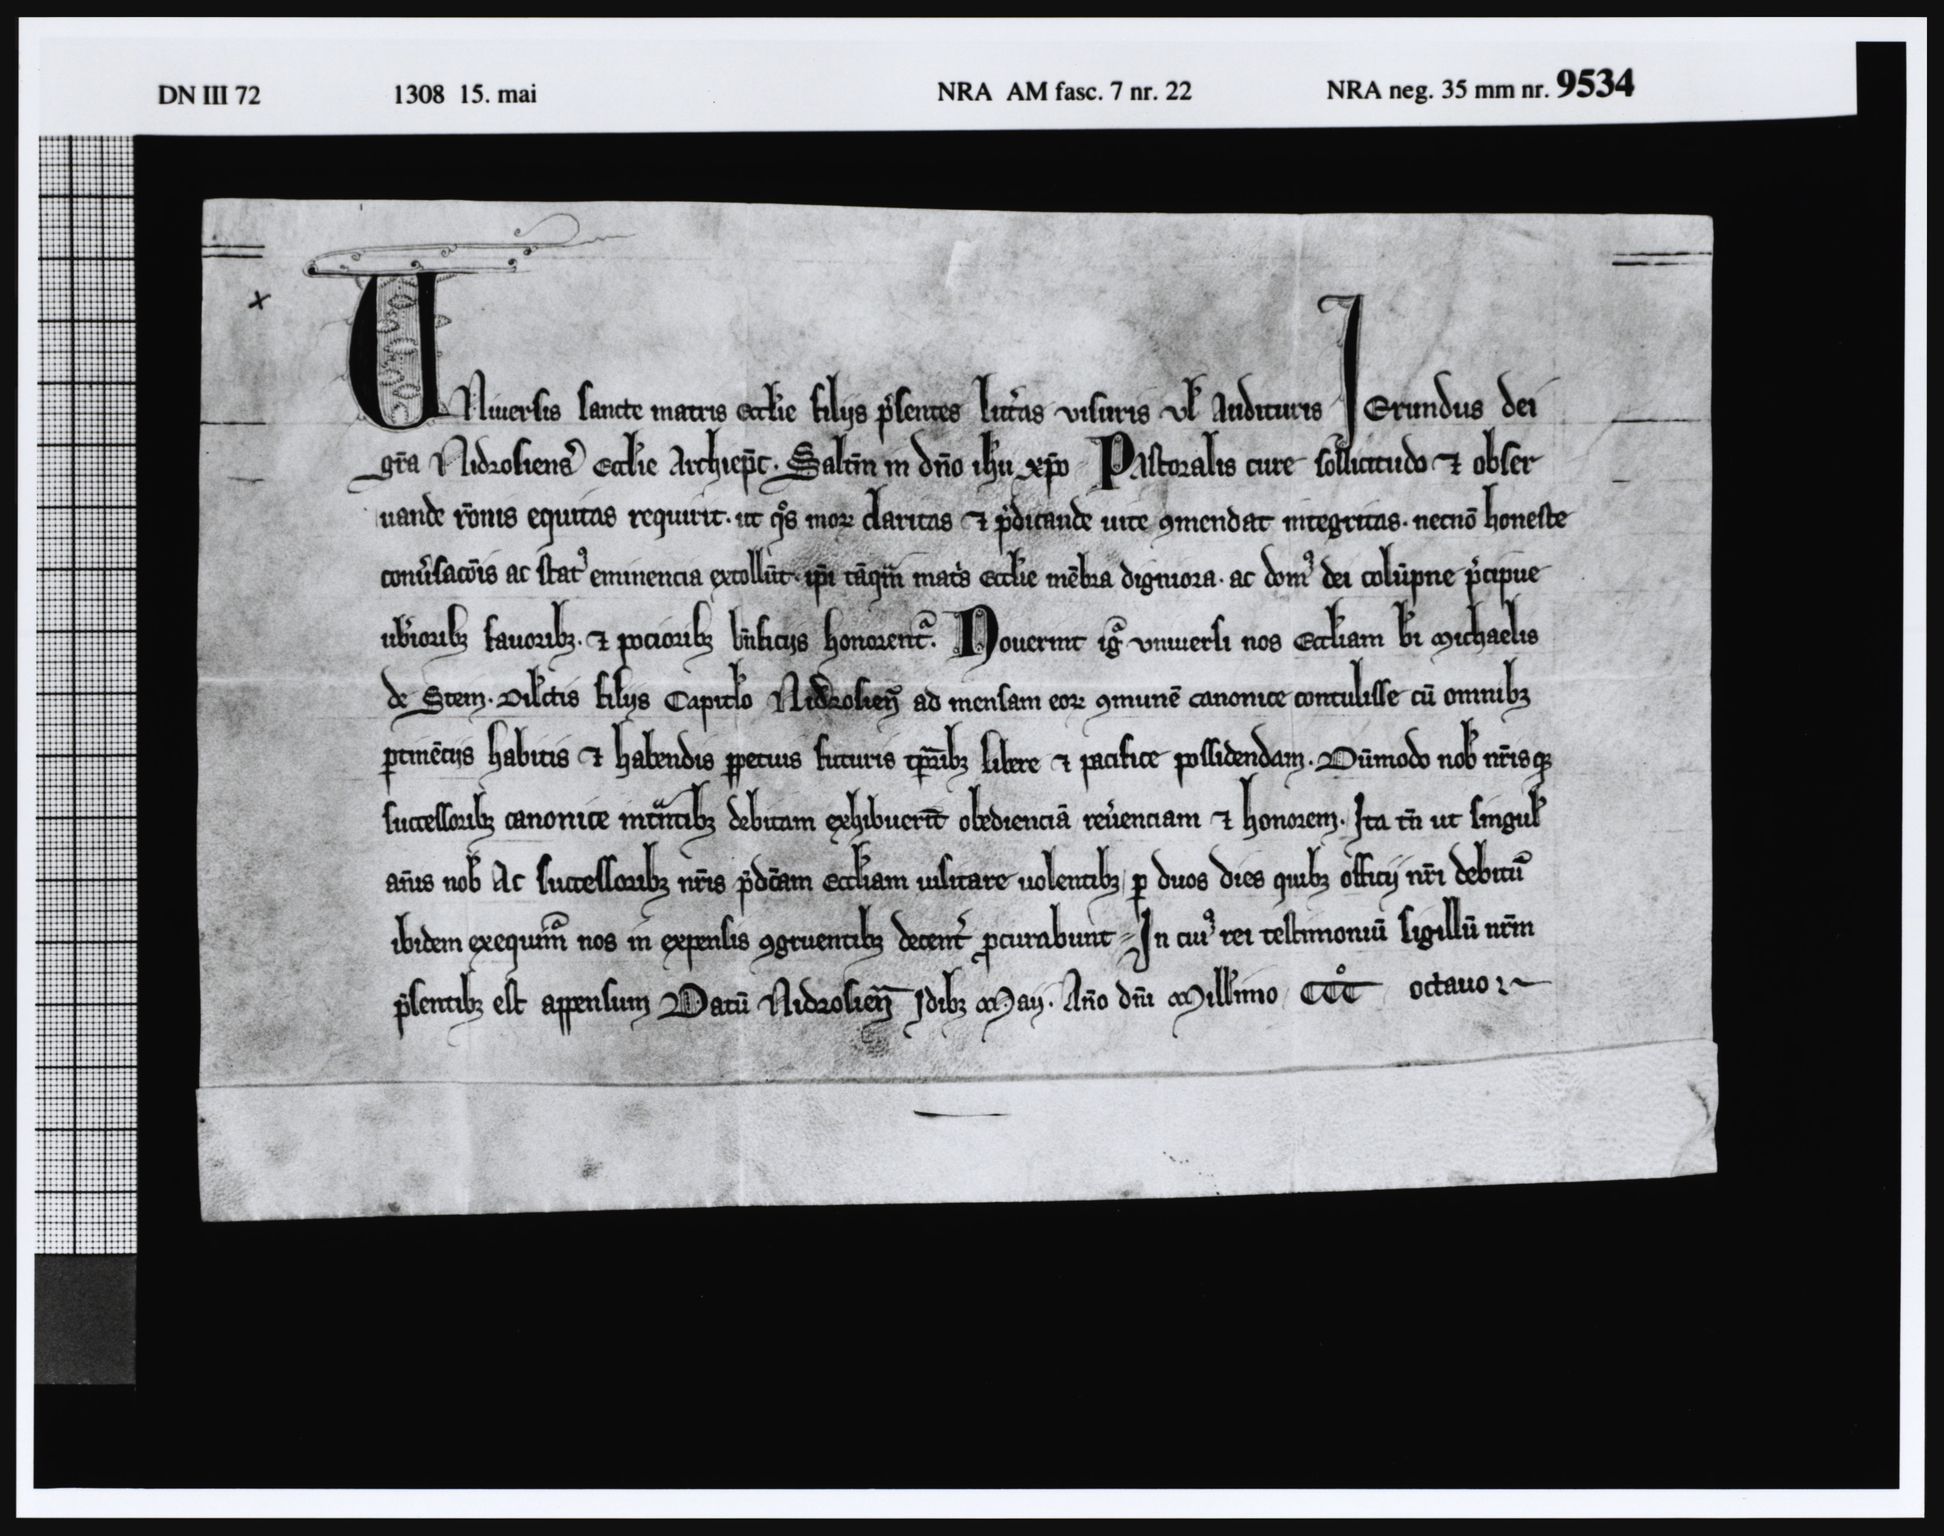 DN III 72 1308 15. mai NRA AM fasc. 7 nr. 22 NRA neg. 35 mm nr. 9534
x
UNiuersis sancte matris eccl̄ie filijs p̄sentes litt̄as visuris vl̄ Audituris JErundus dei
gr̄a Nidrosiens̄ eccl̄ie Archiep̄c. Salt̄m in dn̄o ih̄u xp̄o PAstoralis cure sollicitudo ⁊ obser
uande rōnis equitas requirit. ut qͦs moꝝ claritas ⁊ p̄dicande uite ꝯmendat integritas. necnō honeste
conūsacōis ac statꝰ eminencia extollūt. ip̄i tāqͣm mat̄s eccl̄ie mēbra digniora. ac domꝰ dei colūpne p̄cipue
ub̄ioribꝫ fauoribꝫ. ⁊ pocioribꝫ bn̄ficijs honorentᷣ. Nouerint igᷣ vniuersi nos eccl̄iam bī Michaelis
de Stein. Dilc̄tis filijs Capitl̄o Nidrosien̄ ad mensam eoꝝ ꝯmunē canonice contulisse cū omnibꝫ
ꝑtinēcijs habitis ⁊ habendis ꝑpetuis futuris tp̄ribꝫ libere ⁊ pacifice possidendam. Dūmodo nob̄ nr̄isqꝫ
successoribꝫ canonice intͣntibꝫ debitam exhibuerīt obedienciā reūenciam ⁊ honorem. Ita tn̄ ut singul̄
an̄is nob̄ Ac successoribꝫ nr̄is p̄dc̄am eccl̄iam uisitare uolentibꝫ ꝑ duos dies quibꝫ officij nr̄i debitū
ibidem exequimᷣ nos in expensis ꝯgruentibꝫ decent̄ ꝓcurabunt In cuiꝰ rei testimoniū sigillū nr̄m
p̄sentibꝫ est appensum Datū Nidrosien̄ Jdibꝫ Maij. An̄o dn̄i Mill̄imo CCCͦ octauo